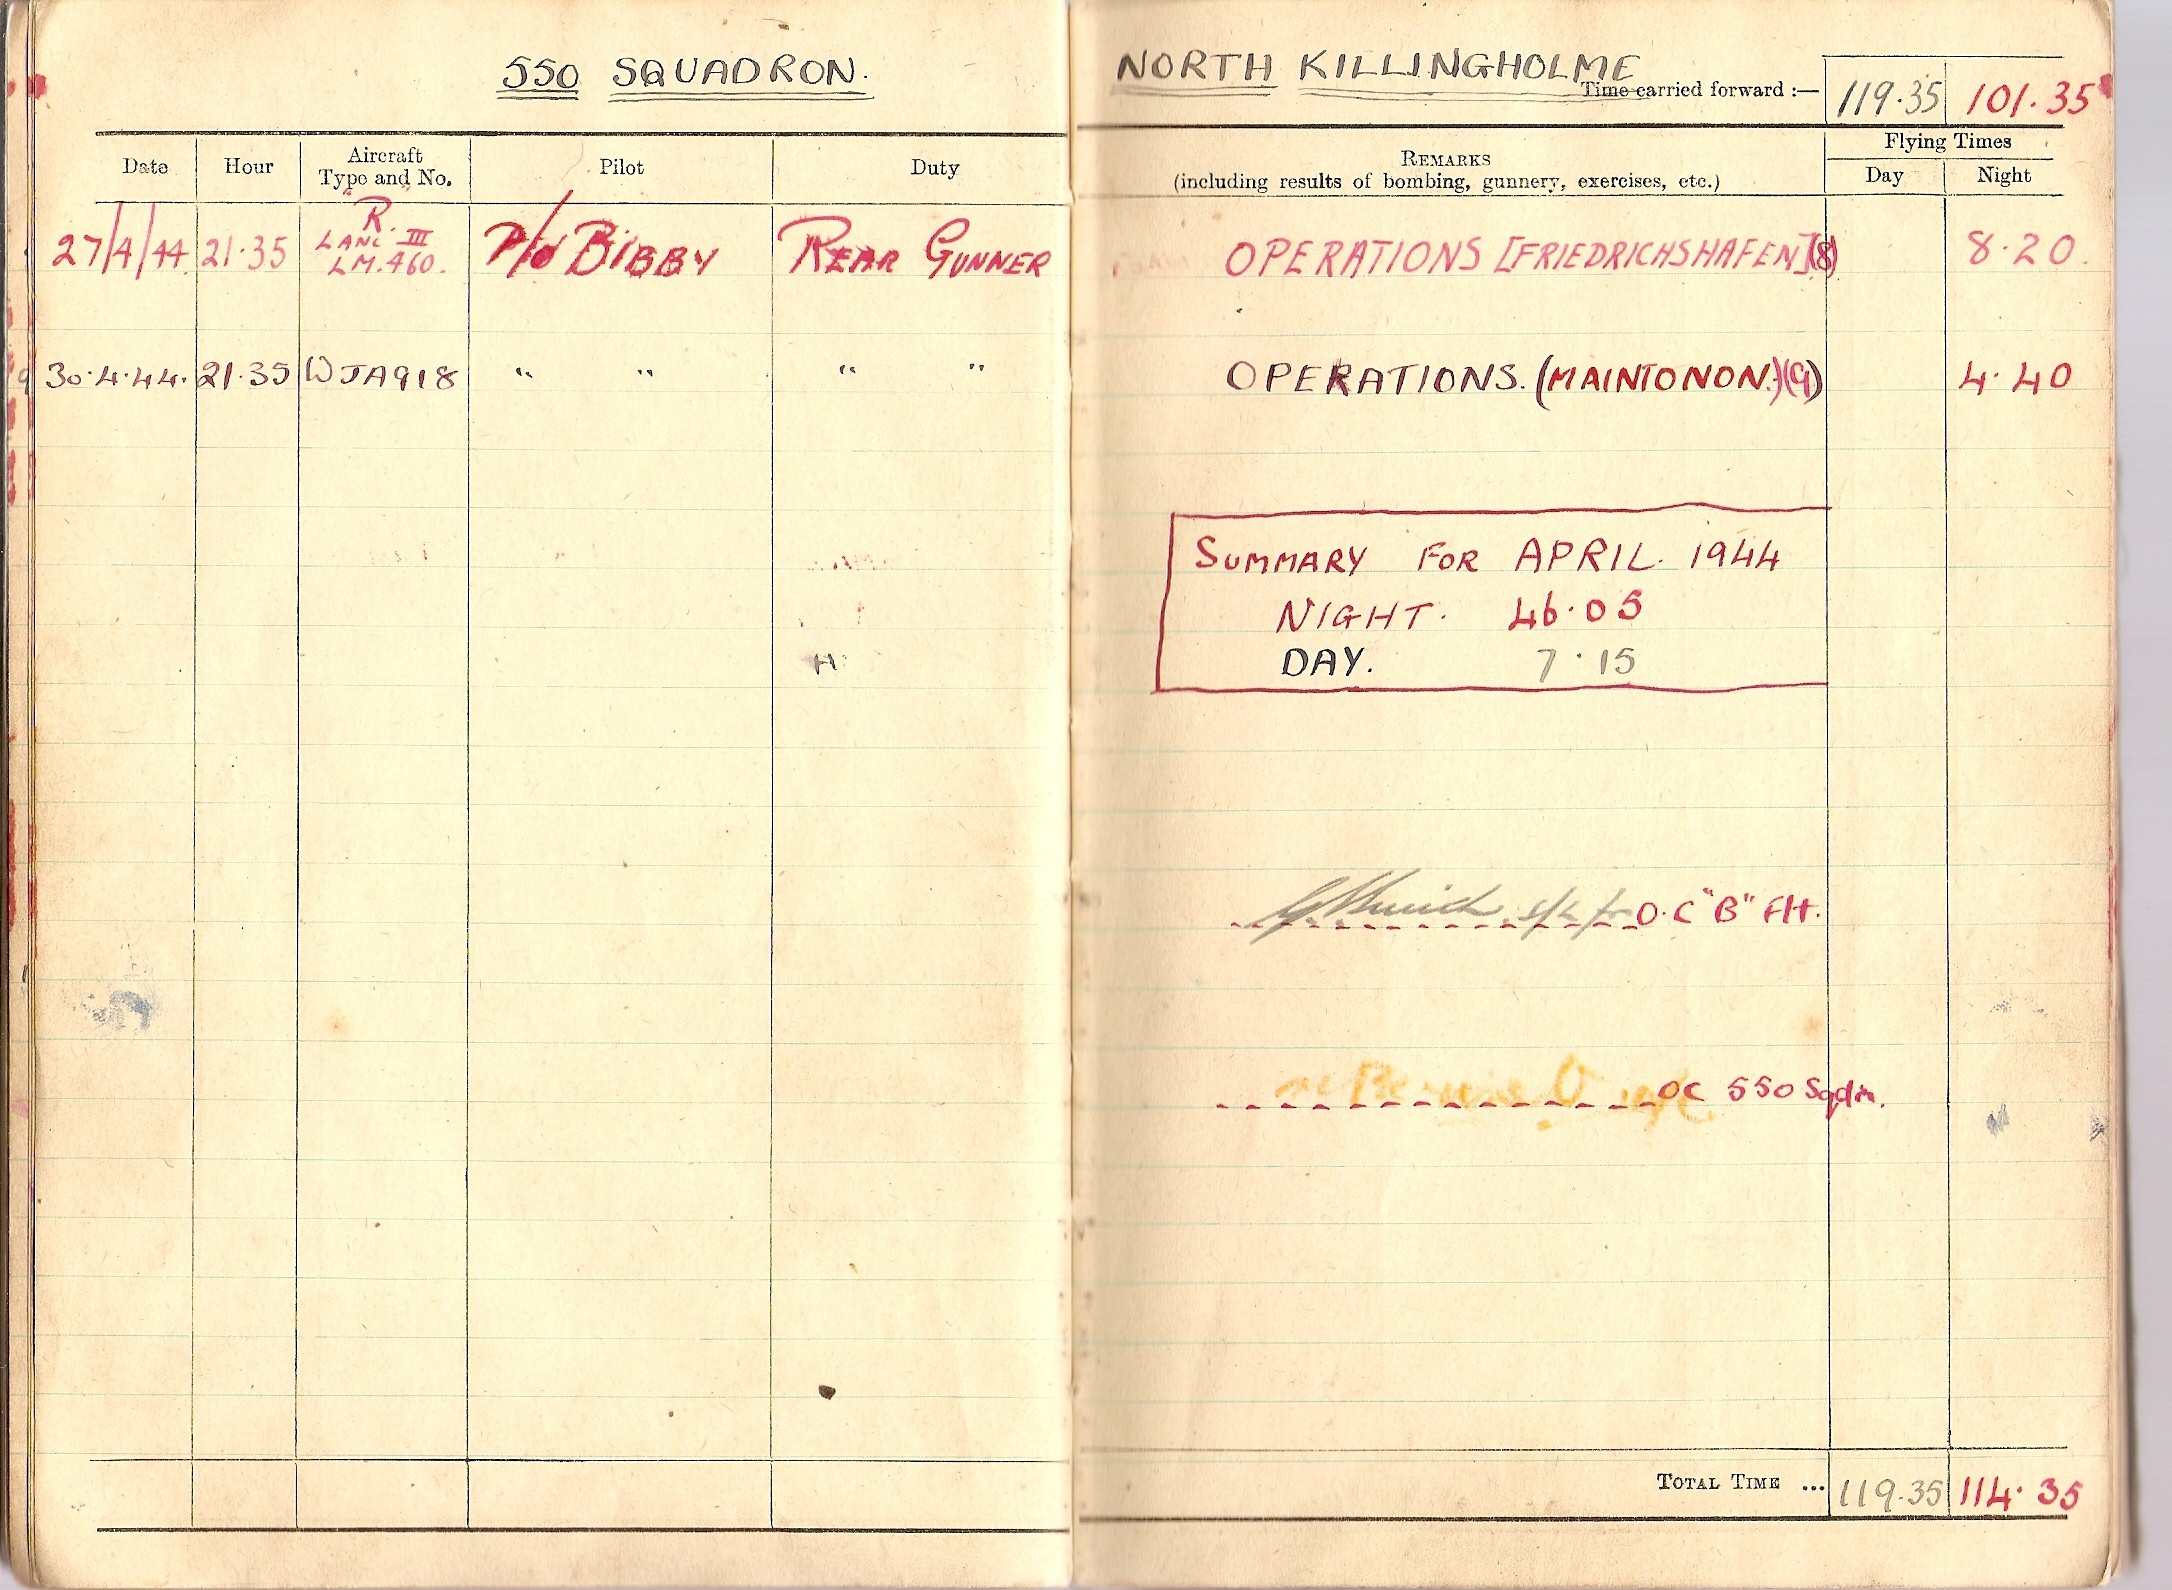 550 SQUADRON.
NORTH KILLINGHOLME
Time carried forward :— 119.35 101.35
Date Hour Aircraft Type and No. Pilot Duty
REMARKS (including results of bombing, gunnery, exercises, etc.)
Flying Times
Day Night
27/4/44 21.35 "R" LANC III LM.460. P/O BIBBY REAR GUNNER OPERATIONS [FRIEDRICHSHAFEN](8) 8.20.
30.4.44. 21.35 W JA918 " " " " OPERATIONS. (MAINTONON.)(9) 4.40
SUMMARY FOR APRIL. 1944
NIGHT. 46.05
DAY. 7.15
S/L for O.C "B" Flt.
OC 550 Sqdn.
TOTAL TIME ... 119.35 114.35